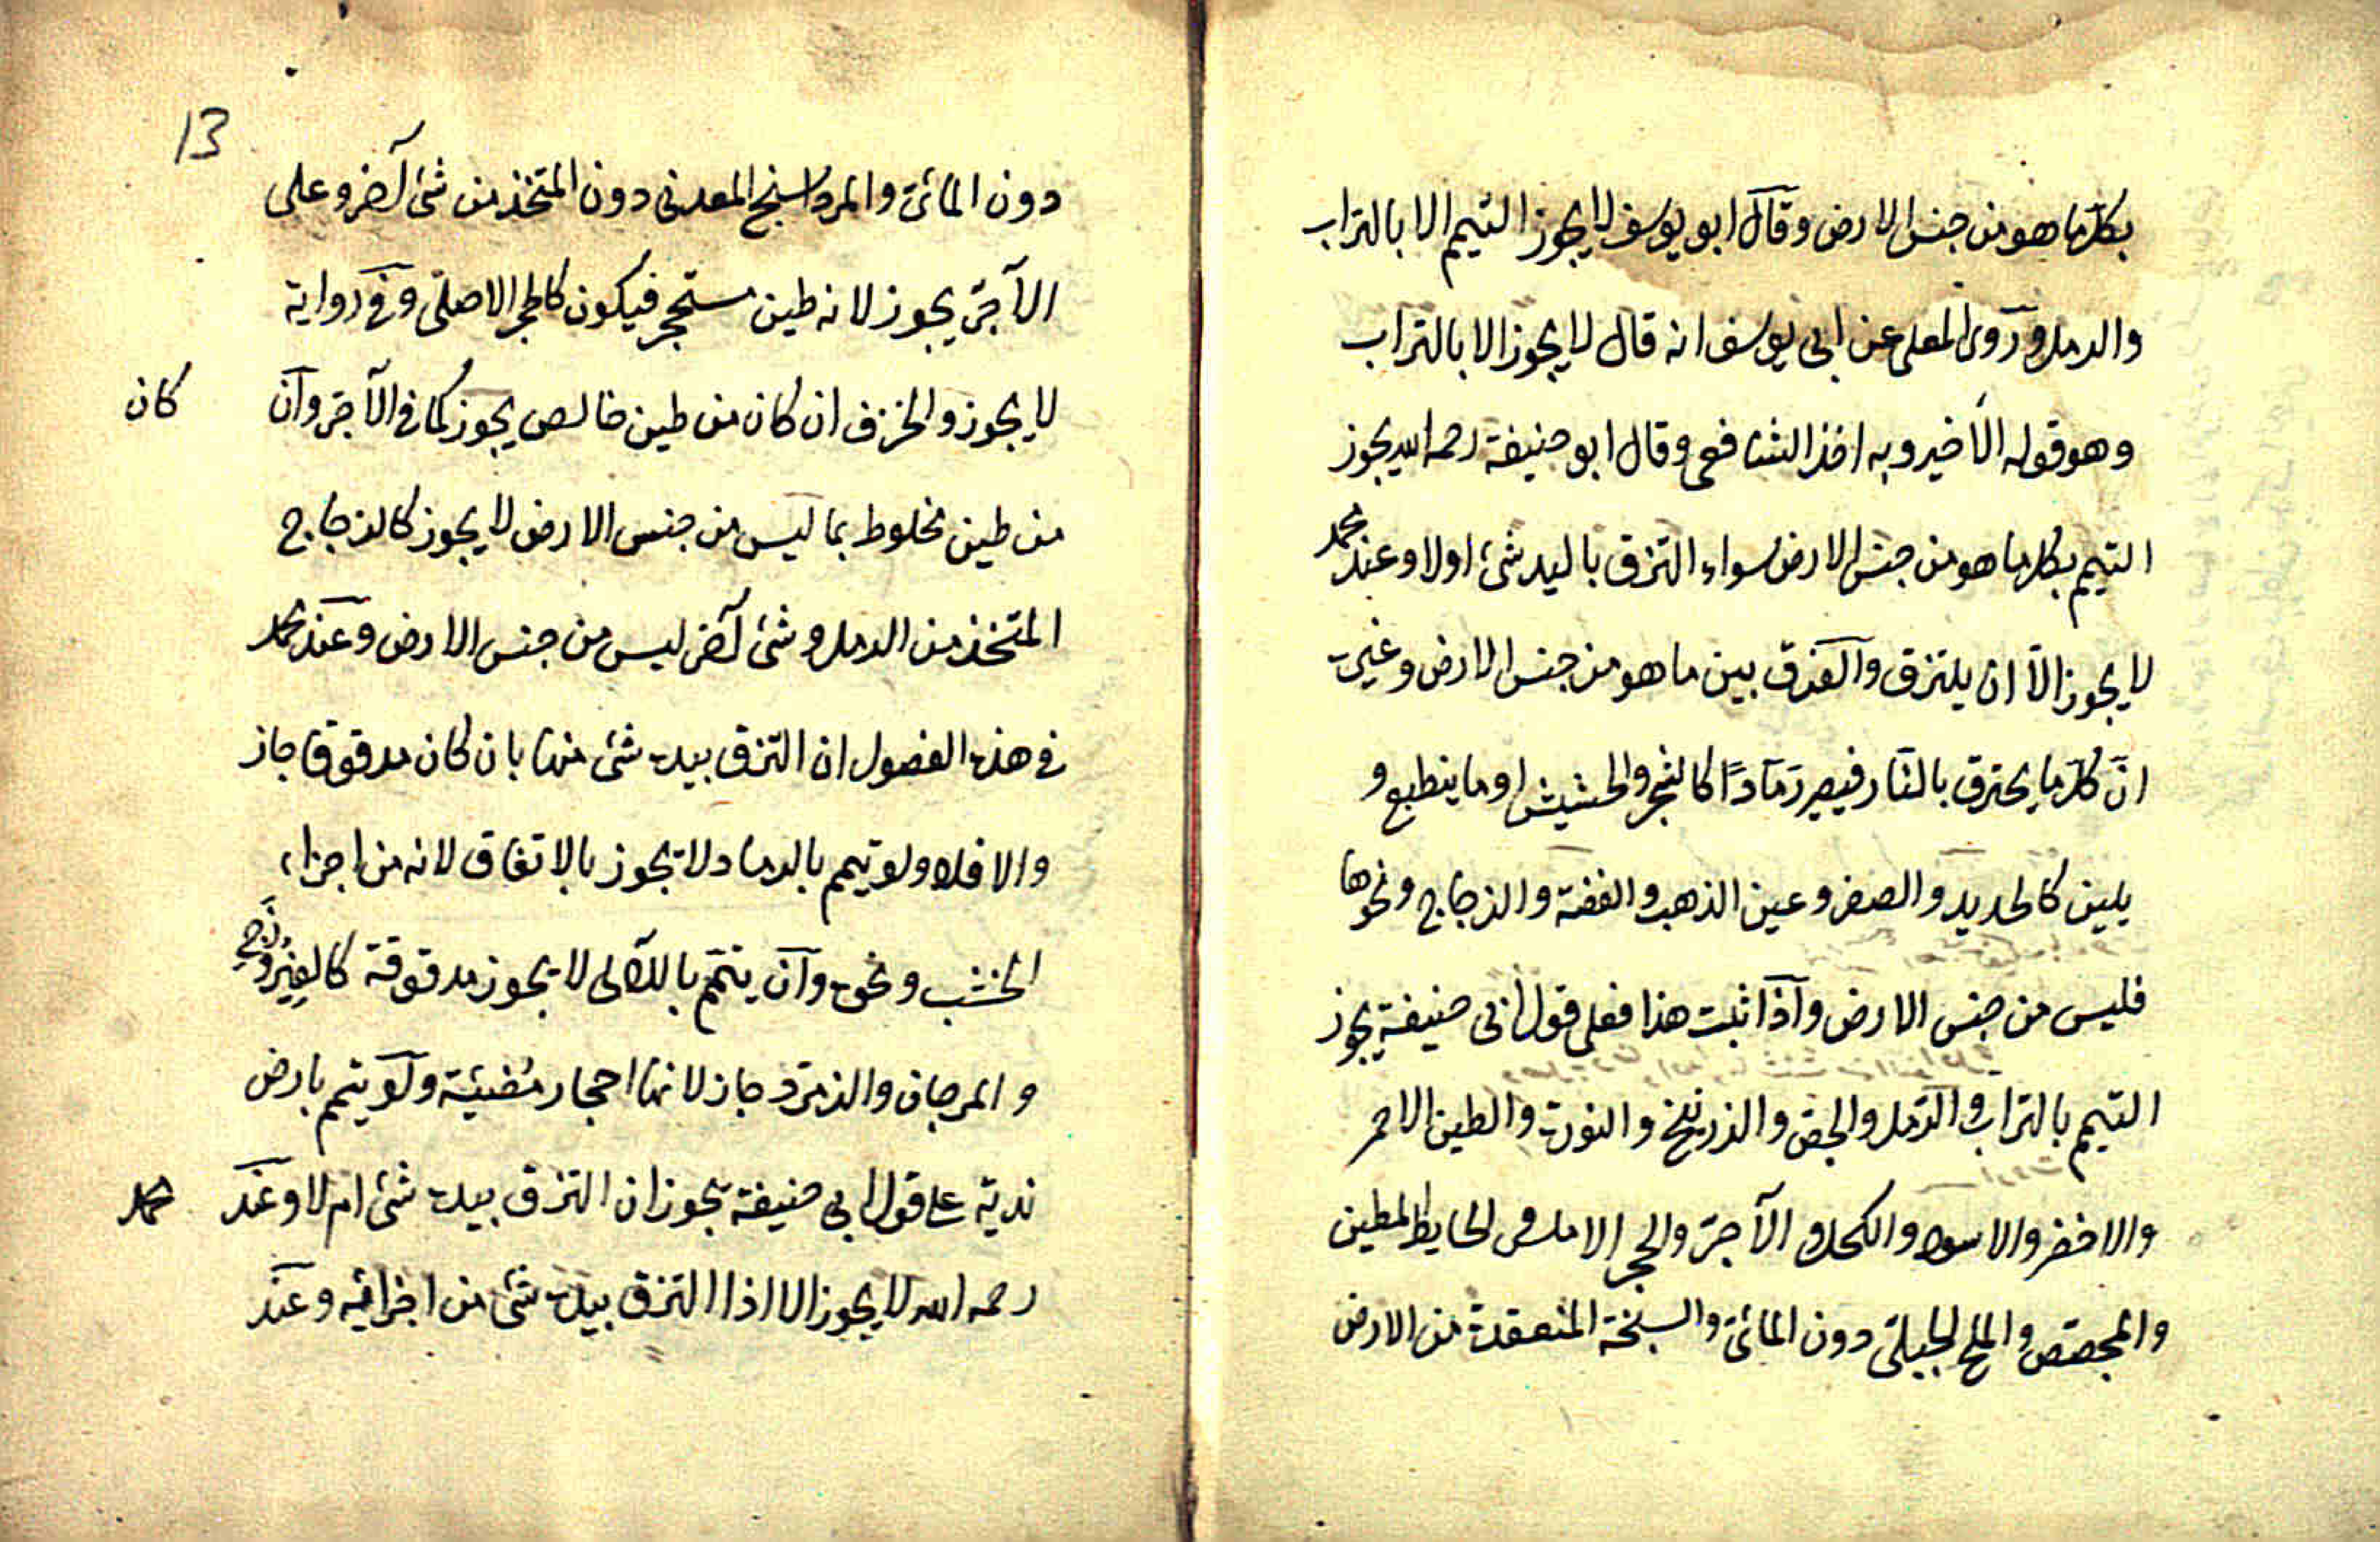 بكل ما هو من جنس الارض وقال ابو يوسف لا يجوز التيمم الا بالتراب
والرمل وروى المعلى عن ابى يوسف انه قال لا يجوز الا بالتراب
وهو قوله الاخير وبه اخذ الشافعى وقال ابو حنيفة رحمه الله يجوز
التيمم بكل ما هو من جنس الارض سواء التزق باليد شئ اولا وعند محمد
لا يجوز الا ان يلتزق والفرق بين ما هو من جنس الارض وغيره
انّ كل ما يحترق بالنار فيصير رمادًا كالشجر والحشيش او ما ينطبع و
يلين كالحديد والصفر وعين الذهب والفضة والزجاج ونحوها
فليس من جنس الارض واذا ثبت هذا فعلى قول ابى حنيفة يجوز
التيمم بالتراب والرمل والجص والزرنيخ والنورة والطين الاحمر
والاخضر والاسود والكحل والآجرّ والحجر الاملس والحايط المطين
والمجصص والملح الجبلى دون المائى والسبخة المنعقدة من الارض
13
دون المائى والمرداسنج المعدنى دون المتخذ من شئ آخر وعلى
الآجرّ يجوز لانه طين مستحجر فيكون كالحجر الاصلى وفى رواية
لا يجوز والخزف ان كان من طين خالص يجوز كما فى الآجر وان كان
من طين مخلوط بما ليس من جنس الارض لا يجوز كالزجاج
المتخذ من الرمل وشئ آخر ليس من جنس الارض وعند محمد
فى هذه الفصول ان التزق بيده شئ منها بان كان مدقوقا جاز
والا فلا ولو تيمم بالرماد لا يجوز بالاتفاق لانه من اجزاء
الخشب ونحوه وان يتمّم باللآلى لا يجوز مدقوقة كالفيروزج
والمرجان والزمرّد جاز لانها احجار مضيئة ولو يتمم بارض
نديّة على قول ابى حنيفة يجوز ان التزق بيده شئ ام لا وعند محمد
رحمه الله لا يجوز الا اذا التزق بيده شئ من اجزائه وعند